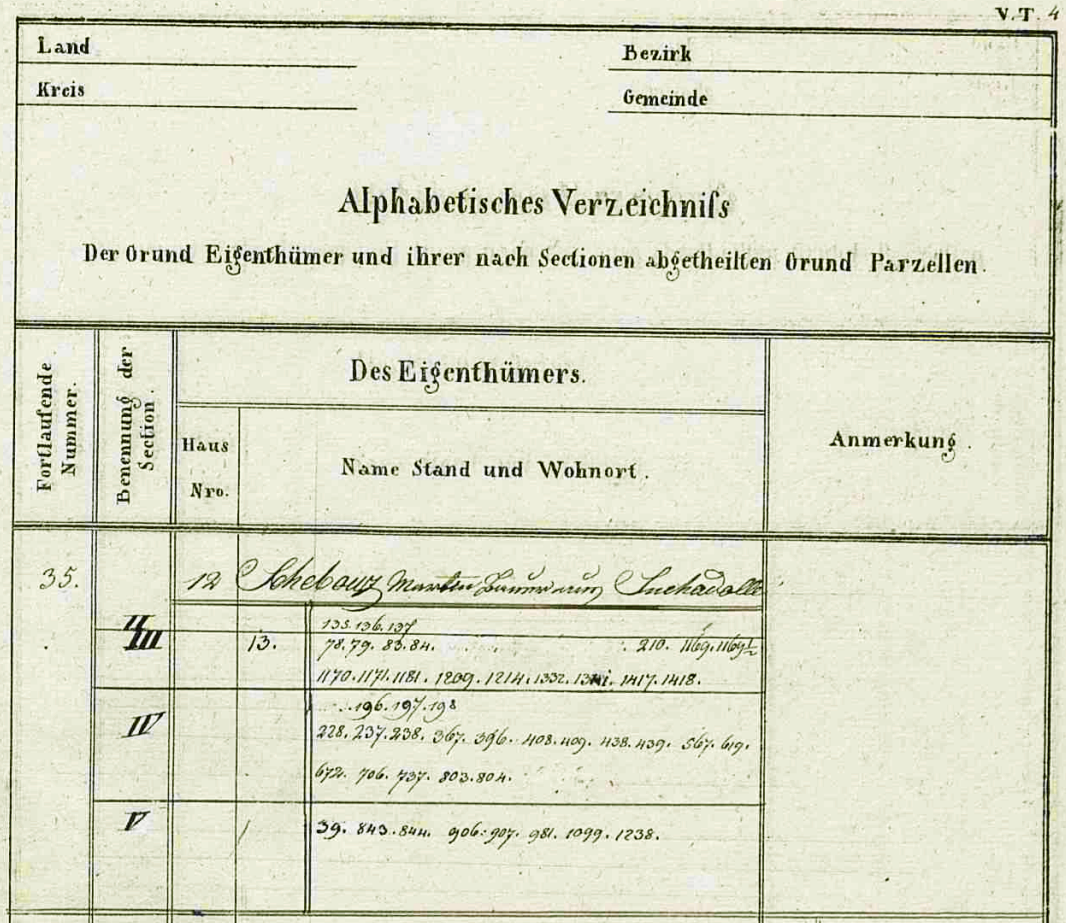 V.T. 4
Land
Bezirk
Kreis
Gemeinde
Alphabetisches Verzeichniſs
Der Grund Eigenthümer und ihrer nach Sectionen abgetheilten Grund Parzellen.
Fortlaufende Nummer.
Benennung der Section.
Des Eigenthümers.
Haus Nro.
Name Stand und Wohnort.
Anmerkung.
35. 12 Martin Bauer aus Suchadolle
II 135. 136. 137
III 13. 78. 79. 83. 84. 210. 1169. 1169½
1170. 1171. 1181. 1209. 1214. 1332. 1417. 1418.
196. 197. 198
IV 228. 237. 238. 367. 396. 408. 409. 438. 439. 567. 619.
672. 706. 737. 803. 804.
V 39. 843. 844. 906. 907. 981. 1099. 1238.